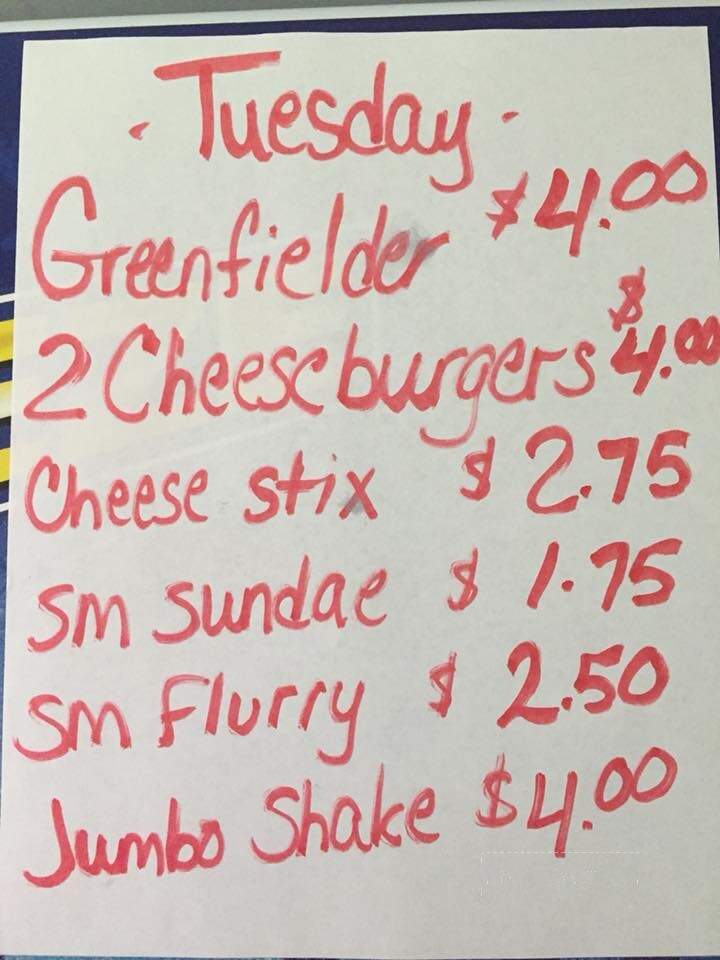 - Tuesday -
Greenfielder $4.00
2 Cheeseburgers $4.00
Cheese stix $2.75
Sm sundae $1.75
Sm Flurry $2.50
Jumbo Shake $4.00